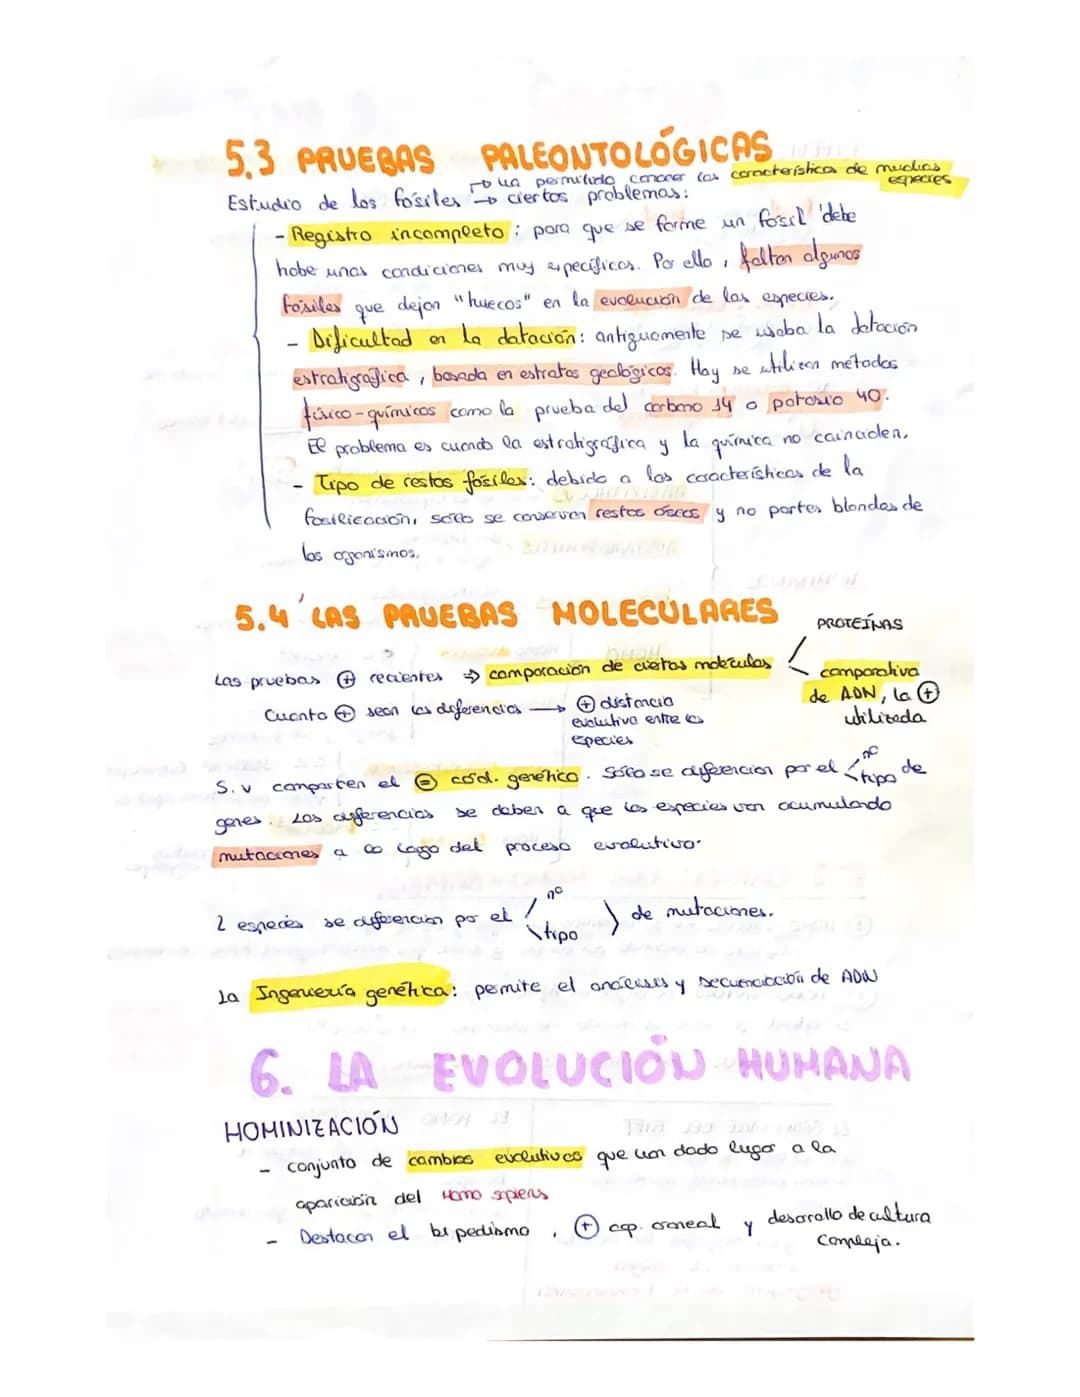 5.3 PRUEBAS PALEONTOLÓGICAS
Estudio de los fósiles → ha permitido conocer las características de muchas especies
→ ciertos problemas:
- Registro incompleto: para que se forme un fósil debe
habe unas condiciones muy específicas. Por ello, faltan algunos
fósiles que dejan "huecos" en la evolución de las especies.
- Dificultad en la datación: antiguamente se usaba la datación
estratigráfica, basada en estratos geológicos. Hoy se utilizan métodos
físico-químicos como la prueba del carbono 14 o potasio 40.
El problema es cuando la estratigráfica y la química no coinciden.
- Tipo de restos fósiles: debido a las características de la
fosilización, sólo se conservan restos óseos y no partes blandas de
los organismos.
5.4 LAS PRUEBAS MOLECULARES
PROTEÍNAS
Las pruebas ⊕ recientes ⇒ comparación de ciertas moléculas
comparativa
de ADN, la ⊕
utilizada
Cuanto ⊕ sean las diferencias → ⊕ distancia
evolutiva entre las
especies
S.v comparten el ⊜ cód. genético. Sólo se diferencian por el nº / tipo de
genes. Las diferencias se deben a que las especies van acumulando
mutaciones a lo largo del proceso evolutivo.
2 especies se diferencian por el nº / tipo de mutaciones.
La Ingeniería genética: permite el análisis y secuenciación de ADN
6. LA EVOLUCIÓN HUMANA
HOMINIZACIÓN
- conjunto de cambios evolutivos que han dado lugar a la
aparición del Homo sapiens
- Destacan el bipedismo, ⊕ cap. craneal y desarrollo de cultura
compleja.